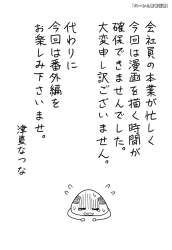 会社員の本業が忙しく
今回は漫画を描く時間が
確保できませんでした。
大変申し訳ございません。
代わりに
今回は番外編を
お楽しみ下さいませ。
津夏なつな